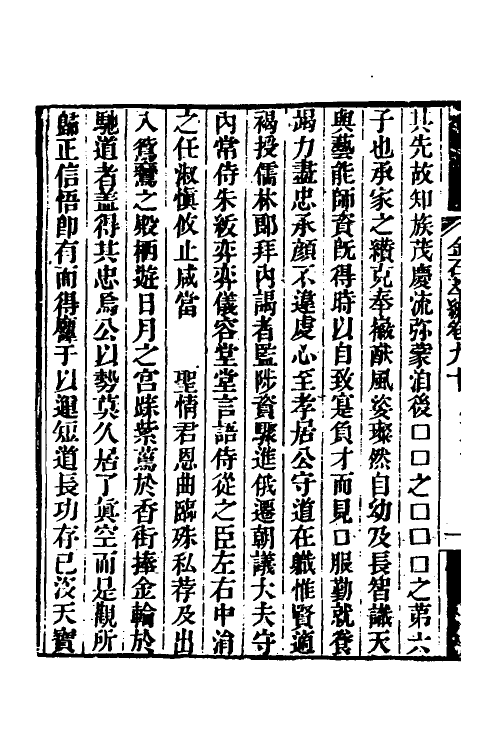 金石萃編卷九十
其先故知族茂慶流弥蒙洎後口口之口口口之第六
子也承家之纘克奉徽猷風姿璨然自幼及長智識天
與藝能師資既得時以自致寔負才而見口服勤就養
竭力盡忠承顏不違虔心至孝居公守道在職惟賢適
褐授儒林郎拜內謁者監陟資驟進俄遷朝議大夫守
內常侍朱紱弈弈儀容堂堂言語侍從之臣左右中涓
之任淑慎攸止咸當　聖情君恩曲臨殊私荐及出
入鴛鸞之殿柄遊日月之宮躋紫蓋於香街捧金輪於
馳道者蓋得其忠焉公以勢莫久居了真空而是觀所
歸正信悟即有而得驗于以運短道長功存已沒天寶